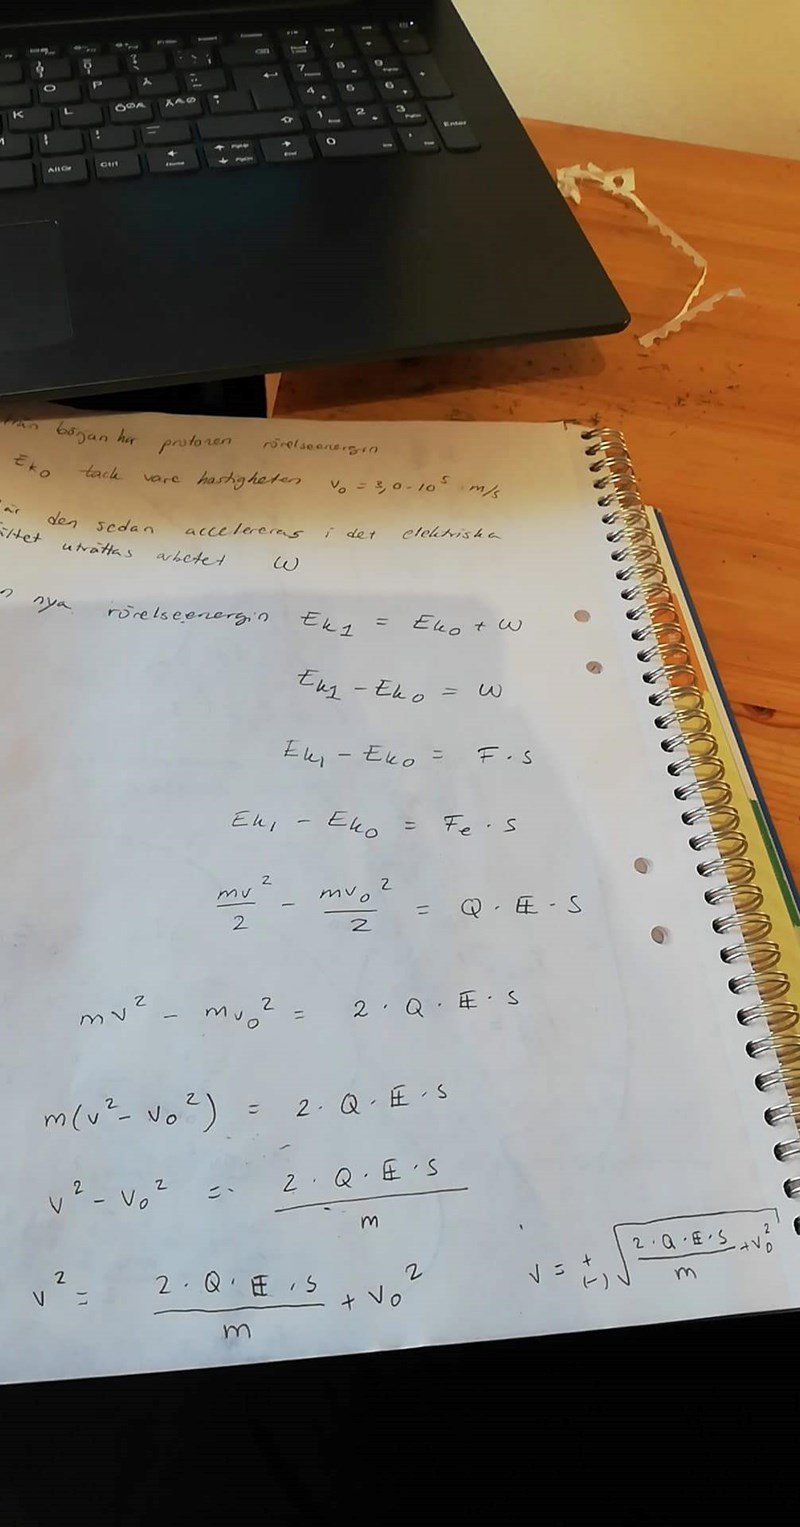 början har protonen rörelseenergin
Ek0 tack vare hastigheten v0 = 3,0 · 10^5 m/s
den sedan accelereras i det elektriska
uträttas arbetet W
nya rörelseenergin Ek1 = Ek0 + W
Ek1 − Ek0 = W
Ek1 − Ek0 = F · s
Ek1 − Ek0 = Fe · s
mv²/2 − mv0²/2 = Q · E · s
mv² − mv0² = 2 · Q · E · s
m(v² − v0²) = 2 · Q · E · s
v² − v0² = 2 · Q · E · s / m
v² = 2 · Q · E · s / m + v0²
v = +(−) √(2 · Q · E · s / m + v0²)